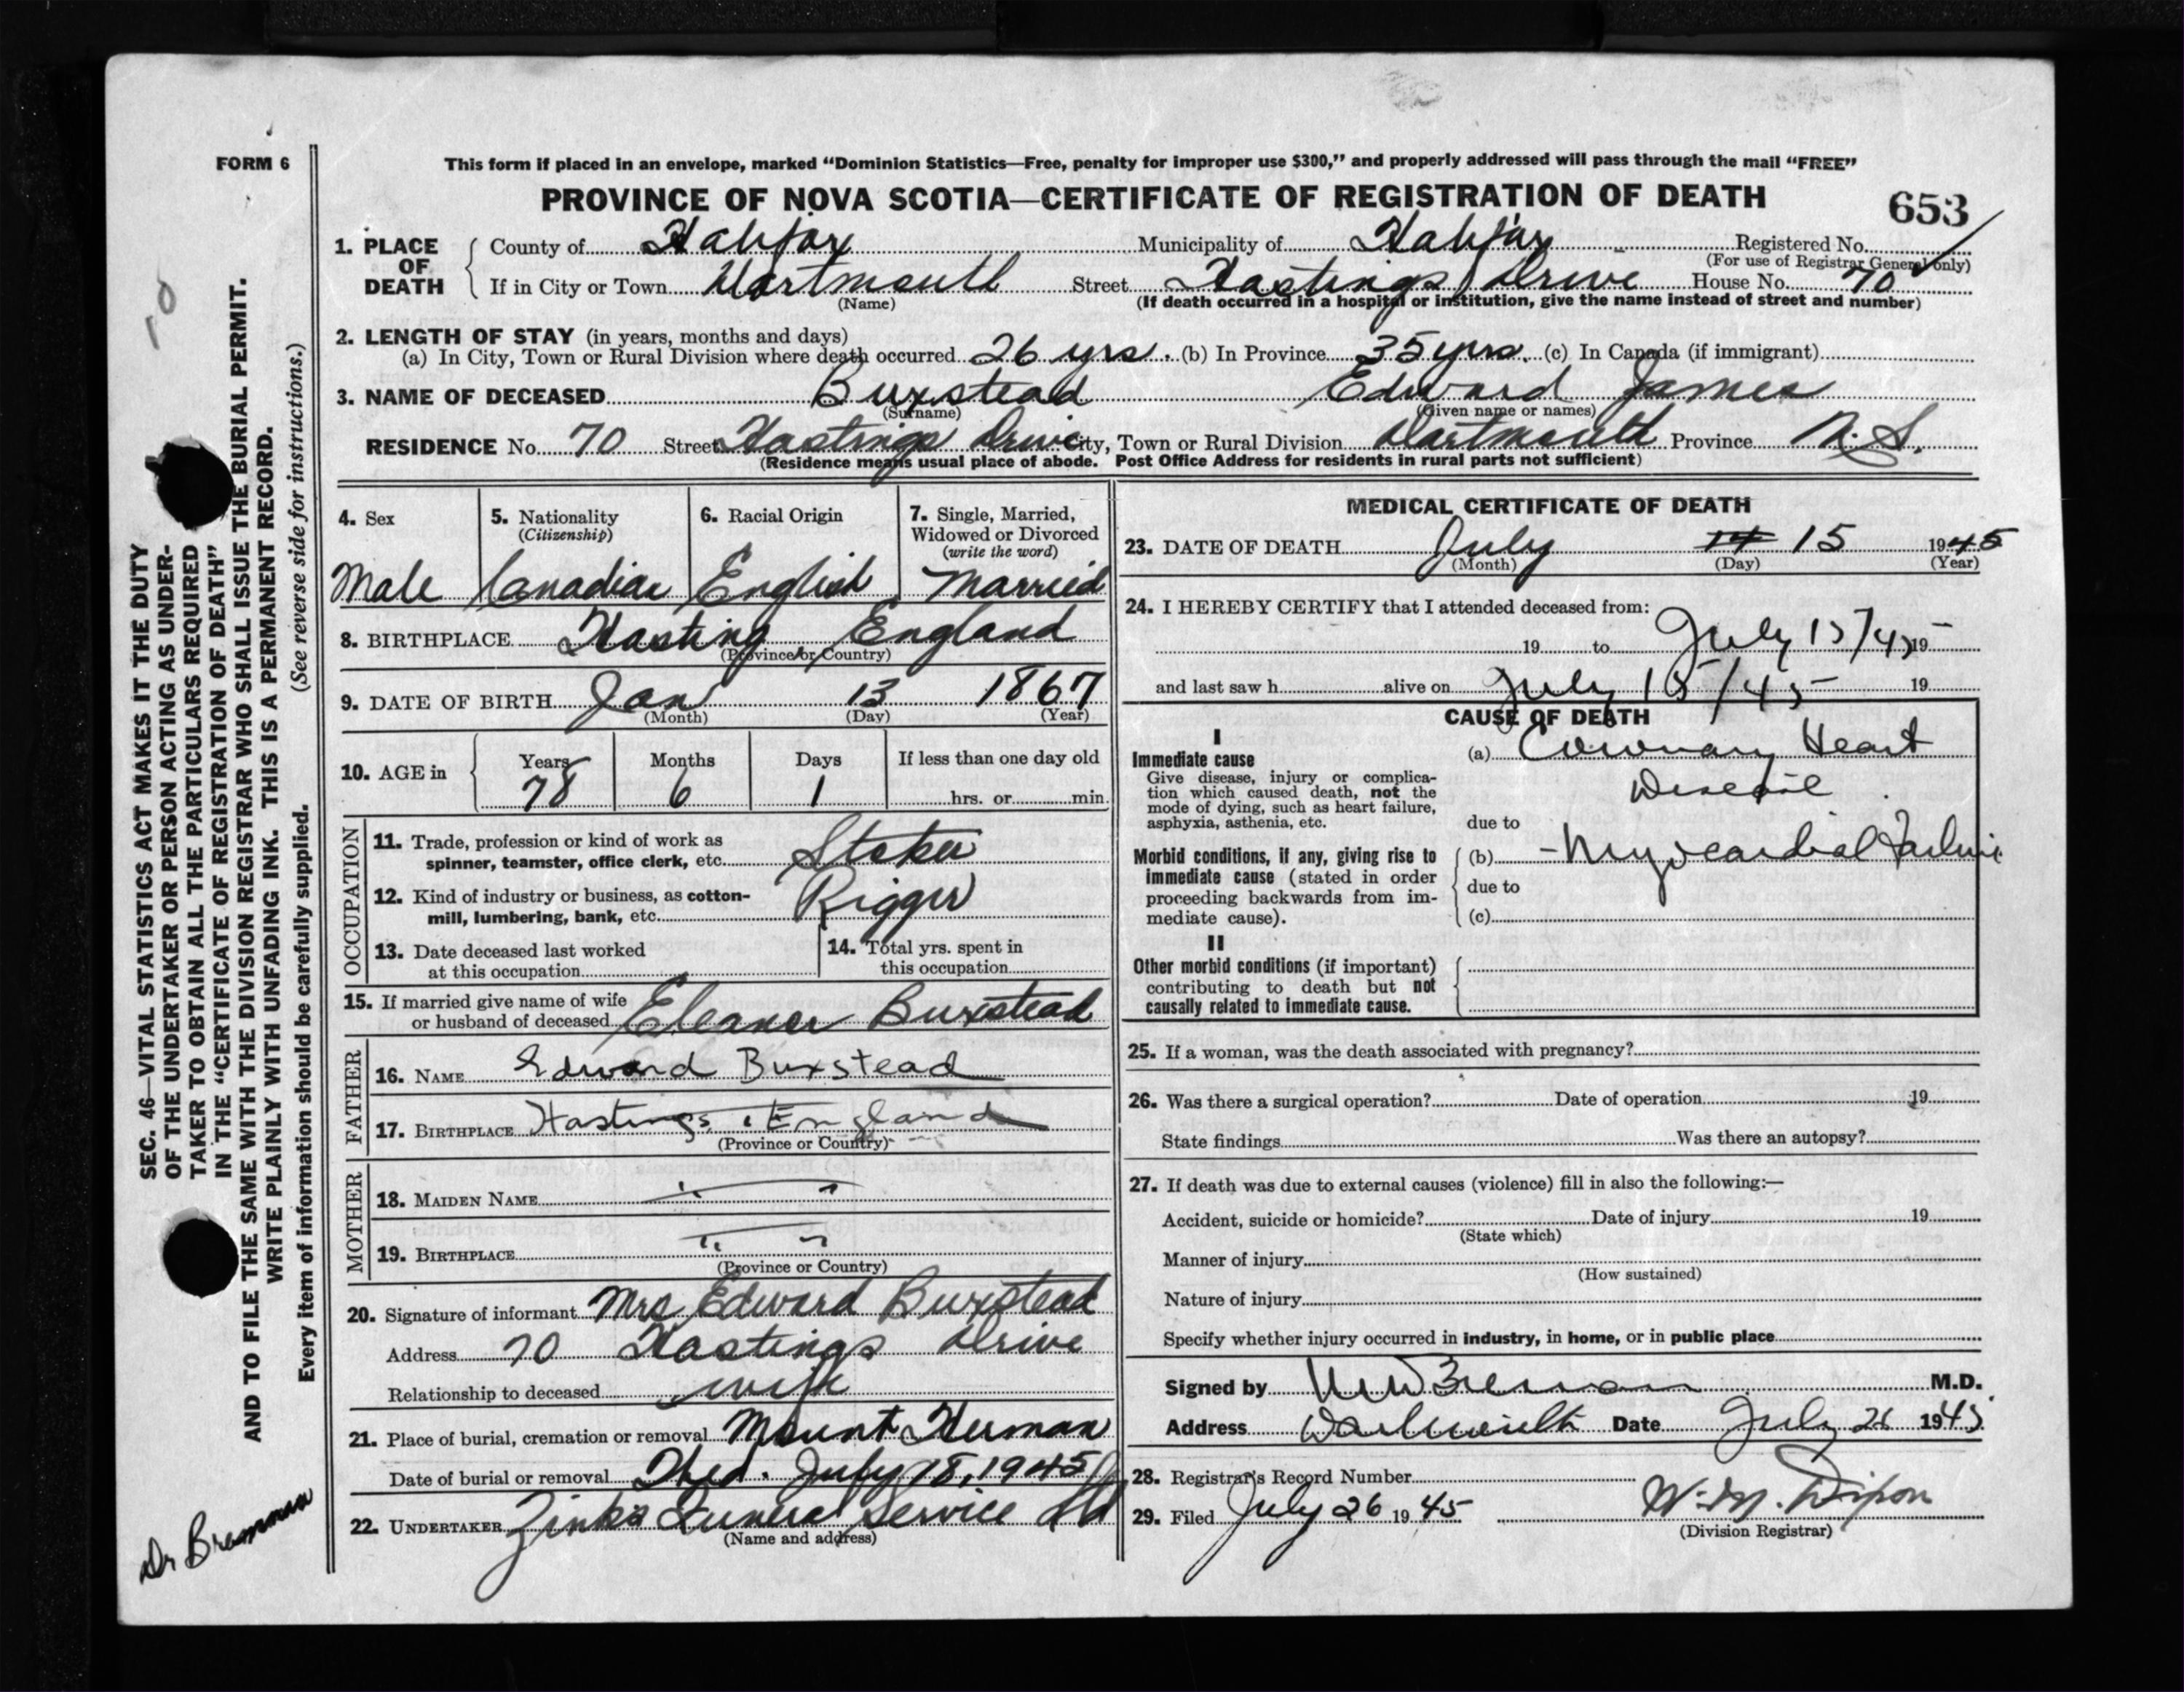 FORM 6
This form if placed in an envelope, marked “Dominion Statistics—Free, penalty for improper use $300,” and properly addressed will pass through the mail “FREE”
PROVINCE OF NOVA SCOTIA—CERTIFICATE OF REGISTRATION OF DEATH
653
1. PLACE OF DEATH
County of Halifax Municipality of Halifax Registered No.
(For use of Registrar General only)
If in City or Town Dartmouth Street Hastings Drive House No. 70
(Name) (If death occurred in a hospital or institution, give the name instead of street and number)
2. LENGTH OF STAY (in years, months and days)
(a) In City, Town or Rural Division where death occurred 26 yrs. (b) In Province 35 yrs. (c) In Canada (if immigrant)
3. NAME OF DECEASED Buxstead Edward James
(Surname) (Given name or names)
RESIDENCE No. 70 Street Hastings Drive City, Town or Rural Division Dartmouth Province N.S.
(Residence means usual place of abode. Post Office Address for residents in rural parts not sufficient)
4. Sex
Male
5. Nationality
(Citizenship)
Canadian
6. Racial Origin
English
7. Single, Married,
Widowed or Divorced
(write the word)
Married
8. BIRTHPLACE Hasting England
(Province or Country)
9. DATE OF BIRTH Jan 13 1867
(Month) (Day) (Year)
10. AGE in Years Months Days If less than one day old
78 6 1 hrs. or min.
OCCUPATION
11. Trade, profession or kind of work as
spinner, teamster, office clerk, etc. Stoker
12. Kind of industry or business, as cotton-
mill, lumbering, bank, etc. Rigger
13. Date deceased last worked
at this occupation
14. Total yrs. spent in
this occupation
15. If married give name of wife
or husband of deceased Eleanor Buxstead
FATHER
16. NAME Edward Buxstead
17. BIRTHPLACE Hastings, England
(Province or Country)
MOTHER
18. MAIDEN NAME
19. BIRTHPLACE
(Province or Country)
20. Signature of informant Mrs Edward Buxstead
Address 70 Hastings Drive
Relationship to deceased wife
21. Place of burial, cremation or removal Mount Herman
Date of burial or removal Wed. July 18, 1945
22. UNDERTAKER Zink's Funeral Service Ltd
(Name and address)
MEDICAL CERTIFICATE OF DEATH
23. DATE OF DEATH July 14 15 1945
(Month) (Day) (Year)
24. I HEREBY CERTIFY that I attended deceased from:
19 to July 15/45 19
and last saw h alive on July 15/45 19
CAUSE OF DEATH
I
Immediate cause
Give disease, injury or complica-
tion which caused death, not the
mode of dying, such as heart failure,
asphyxia, asthenia, etc.
(a) Coronary Heart
Disease
due to
Morbid conditions, if any, giving rise to
immediate cause (stated in order
proceeding backwards from im-
mediate cause).
(b) - Myocardial Failure
due to
(c)
II
Other morbid conditions (if important)
contributing to death but not
causally related to immediate cause.
25. If a woman, was the death associated with pregnancy?
26. Was there a surgical operation? Date of operation 19
State findings Was there an autopsy?
27. If death was due to external causes (violence) fill in also the following:—
Accident, suicide or homicide? Date of injury 19
(State which)
Manner of injury
(How sustained)
Nature of injury
Specify whether injury occurred in industry, in home, or in public place
Signed by Brennan M.D.
Address Dartmouth Date July 26 1945
28. Registrar's Record Number
29. Filed July 26 1945 W. M. Dixon
(Division Registrar)
SEC. 46—VITAL STATISTICS ACT MAKES IT THE DUTY
OF THE UNDERTAKER OR PERSON ACTING AS UNDER-
TAKER TO OBTAIN ALL THE PARTICULARS REQUIRED
IN THE “CERTIFICATE OF REGISTRATION OF DEATH”
AND TO FILE THE SAME WITH THE DIVISION REGISTRAR WHO SHALL ISSUE THE BURIAL PERMIT.
WRITE PLAINLY WITH UNFADING INK. THIS IS A PERMANENT RECORD.
Every item of information should be carefully supplied. (See reverse side for instructions.)
Dr Brennan